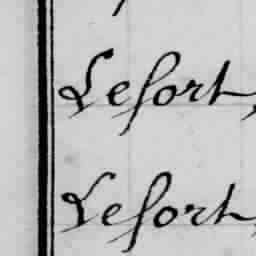 Lefort,
Lefort,